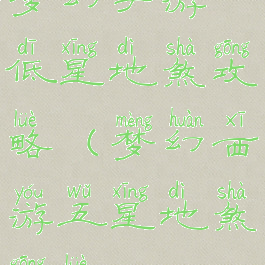 dī xīng dì shà gōng
低星地煞攻
lüè mèng huàn xī
略（梦幻西
yóu wǔ xīng dì shà
游五星地煞
gōng lüè